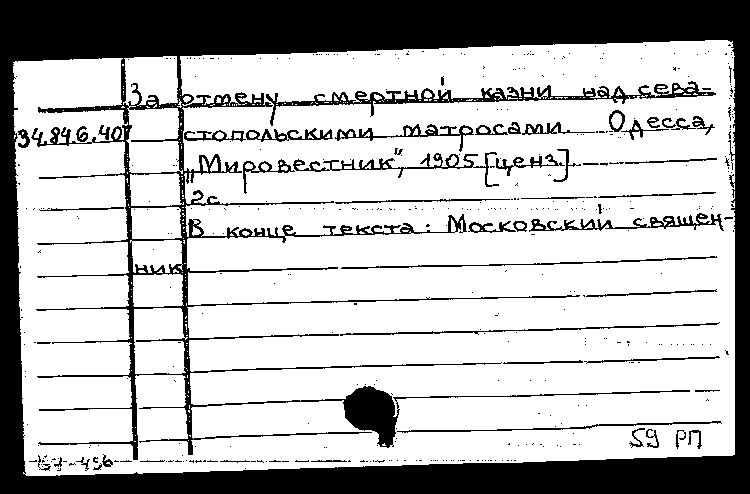 За отмену смертной казни над сева-
34.84.6.407 стопольскими матросами. Одесса,
„Мировестник“, 1905 [ценз].
2с.
В конце текста: Московский священ-
ник.
59 РП
67-456